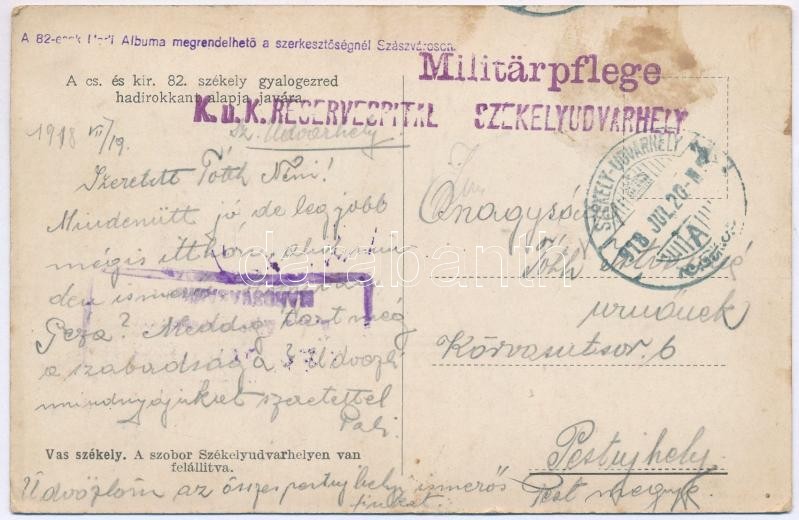 A 82-esek Albuma megrendelhető a szerkesztőségnél Szászvároson.
A cs. és kir. 82. székely gyalogezred
hadirokkant alapja javára.
Militärpflege
K.u.K. RESERVESPITAL SZEKELYUDVARHELY
1918 VII/19. Sz. Udvarhely
Szeretett Tóth Néni!
Mindenütt jó de legjobb
mégis itthon, ahol min
den isme
Géza? Meddig tart még
a szabadsága? Üdvözli
mindnyájukat szeretettel
Pali.
SZÉKELY-UDVARHELY
918 JUL. 20
A
Önagysá
Tóth
urnőnek
Kórvasutsor. 6
Pestujhely
Pest megye.
Vas székely. A szobor Székelyudvarhelyen van
felállítva.
Üdvözlöm az összes pestujhelyi ismerős
darabanth